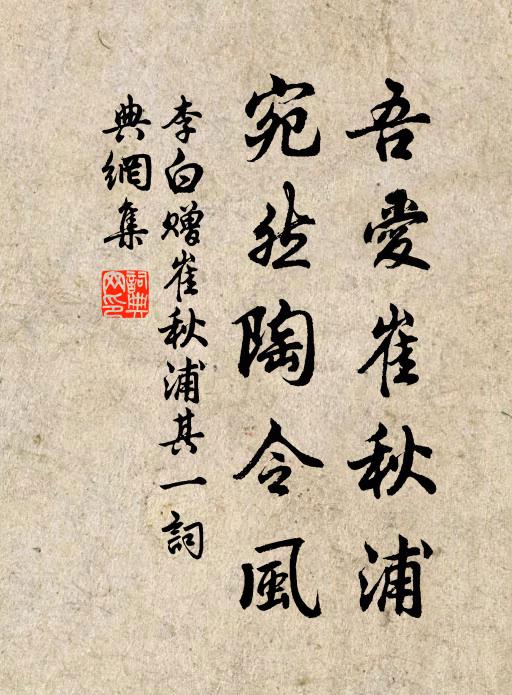 吾愛崔秋浦
宛然陶令風
李白贈崔秋浦其一詞
典網集
詞典网印